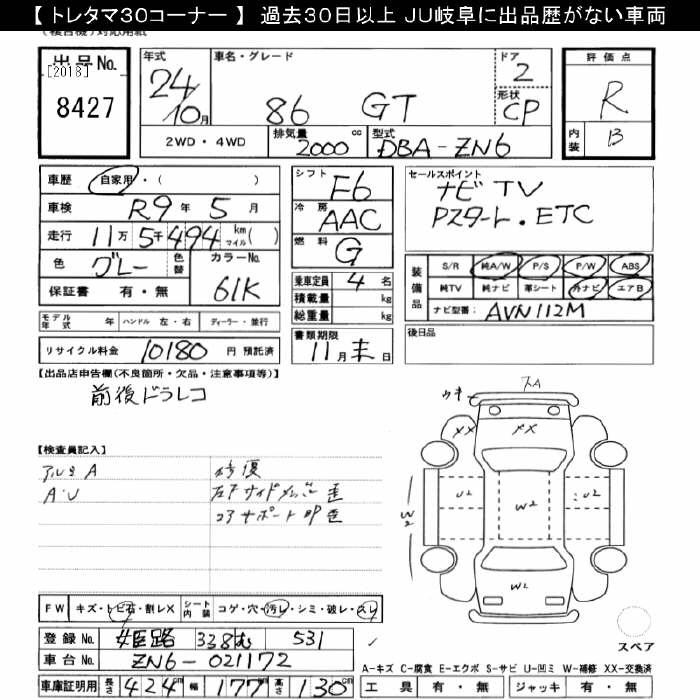 【 トレタマ30コーナー 】 過去30日以上 JU岐阜に出品歴がない車両
出品No.
[2018]
8427
年式
24
10月
車名・グレード
86 GT
ドア
2
形状
CP
2WD・4WD
排気量
2000 cc
型式
DBA-ZN6
評価点
R
内装
B
車歴 自家用・( )
車検 R9年 5月
走行 11万 5千494 km マイル( )
色 グレー 色替
カラーNo.
61K
保証書 有・無
シフト
F6
冷房
AAC
燃料
G
乗車定員 4 名
積載量 kg
総重量 kg
セールスポイント
ナビ TV
Pスタート.ETC
装備品
S/R 純A/W P/S P/W ABS
純TV 純ナビ 革シート 外ナビ エアB
ナビ型番: AVN112M
モデル年式 年 ハンドル 左・右 ディーラー・並行
リサイクル料金 10180 円 預託済
書類期限
11月末日
後日品
【出品店申告欄(不良箇所・欠品・注意事項等)】
前後ドラレコ
【検査員記入】
アルミ A
A・U
修復
コアサポート
ウキ
XX
XX
U2
W2
U2
W2
W2
スペア
FW キズ・トビ石・割レX シート内装 コゲ・穴・汚レ・シミ・破レ・スレ
登録No. 姫路 338 む 531
車台No. ZN6-021172
車庫証明用 長さ 424cm 幅 177cm 高さ 130cm
A-キズ C-腐食 E-エクボ S-サビ U-凹ミ W-補修 XX-交換済
工具 有・無 ジャッキ 有・無